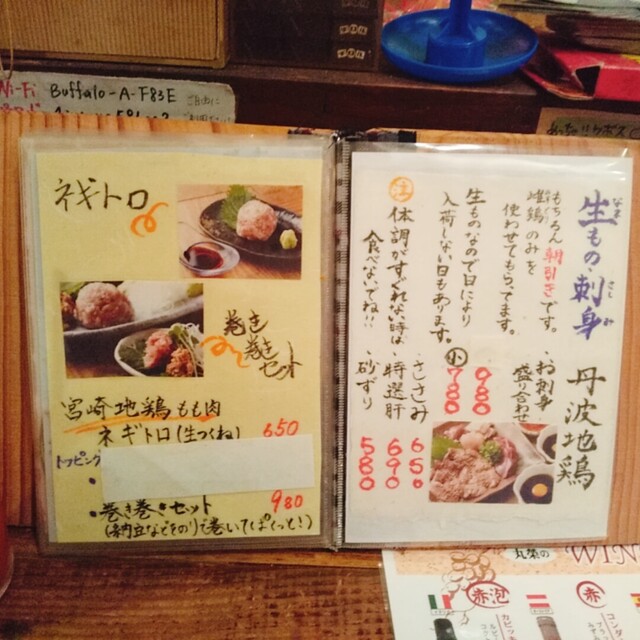 Buffalo-A-F83E
ネギトロ
巻き
巻き
セット
宮崎地鶏もも肉
ネギトロ(生つくね) 650
トッピング
・巻き巻きセット 980
(納豆などをのりで巻いてぱくっと!)
生もの・刺身
なま さしみ
丹波地鶏
もちろん朝引きです。
雌鶏のみを
使わせてもらってます。
生ものなので日により
入荷しない日もあります。
注 体調がすぐれない時は
食べないでね!!
・お刺身
盛り合わせ
980
小 780
・ささみ 650
・特選肝 690
・砂ずり 580
丸菊の
WIN
赤泡
赤